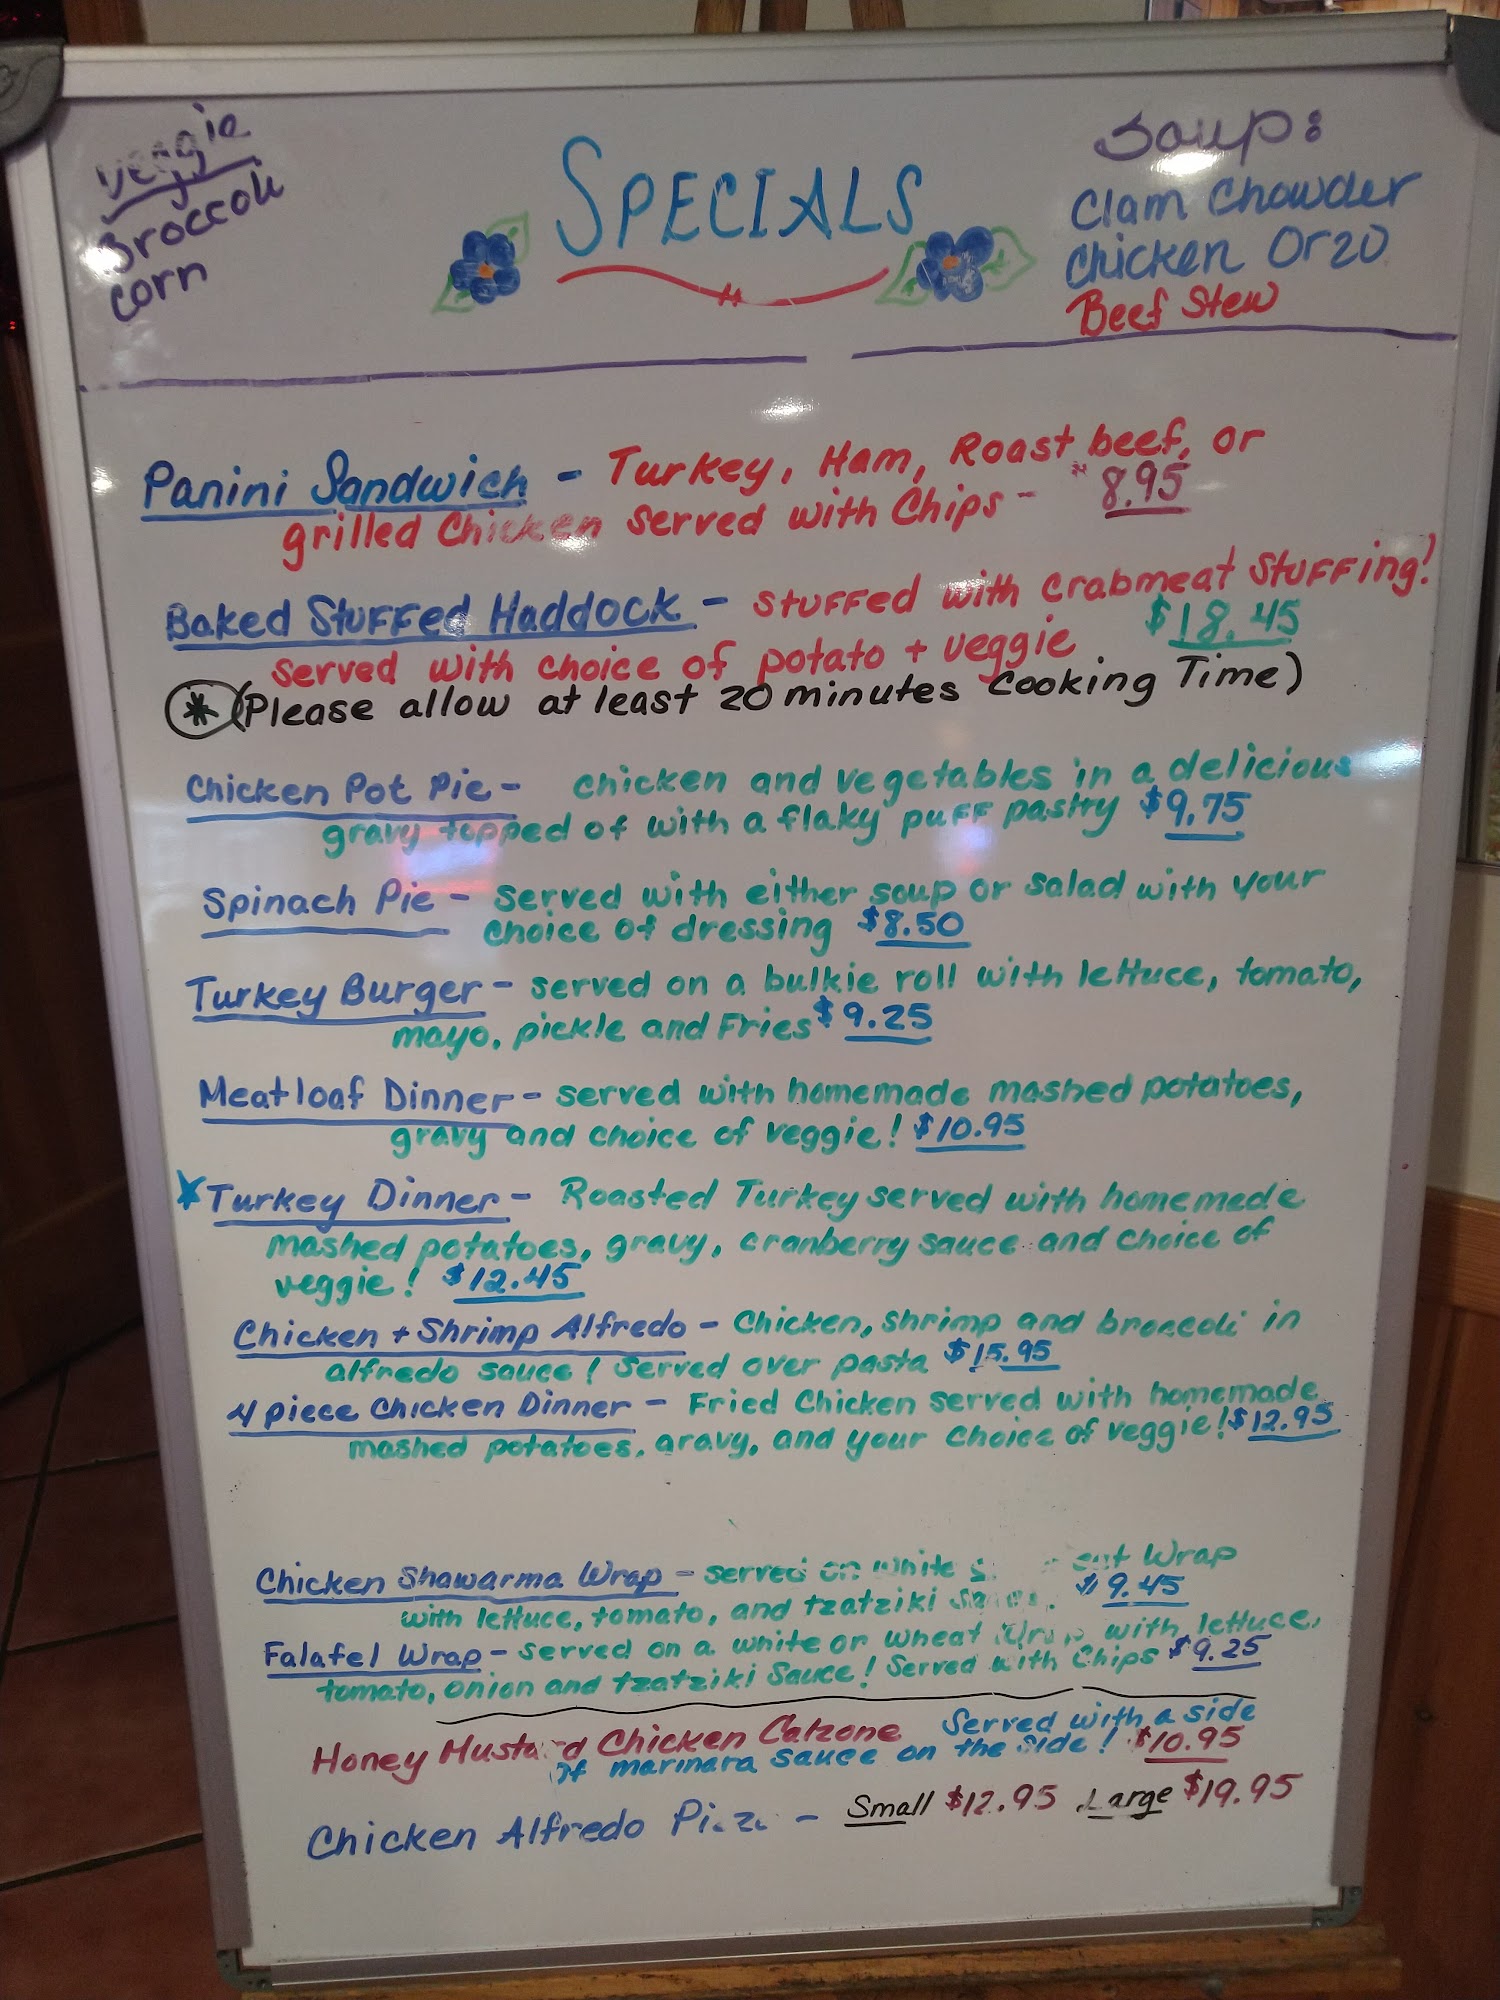 Veggie
Broccoli
corn
SPECIALS
Soup:
Clam Chowder
Chicken Orzo
Beef Stew
Panini Sandwich - Turkey, Ham, Roast beef, or
grilled Chicken served with Chips - $8.95
Baked Stuffed Haddock - stuffed with crabmeat stuffing!
served with choice of potato + veggie $18.45
* (Please allow at least 20 minutes cooking Time)
Chicken Pot Pie - chicken and vegetables in a delicious
gravy topped of with a flaky puff pastry $9.75
Spinach Pie - served with either soup or salad with your
choice of dressing $8.50
Turkey Burger - served on a bulkie roll with lettuce, tomato,
mayo, pickle and Fries $9.25
Meatloaf Dinner - served with homemade mashed potatoes,
gravy and choice of veggie! $10.95
Turkey Dinner - Roasted Turkey served with homemade
mashed potatoes, gravy, cranberry sauce and choice of
veggie! $12.45
Chicken + Shrimp Alfredo - Chicken, shrimp and broccoli in
alfredo sauce! Served over pasta $15.95
4 piece Chicken Dinner - Fried Chicken served with homemade
mashed potatoes, gravy, and your choice of veggie! $12.95
Chicken Shawarma Wrap - served on white Wrap
with lettuce, tomato, and tzatziki $9.45
Falafel Wrap - served on a white or wheat Wrap with lettuce,
tomato, onion and tzatziki Sauce! Served with Chips $9.25
Honey Mustard Chicken Calzone Served with a side
of marinara sauce on the side! $10.95
Chicken Alfredo Pizza - Small $12.95 Large $19.95